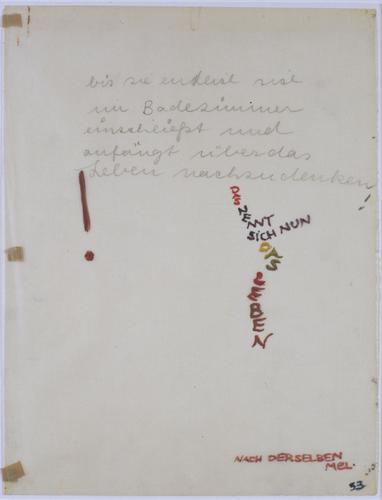 bis sie endlich sich
im Badezimmer
einschließt und
anfängt über das
Leben nachzudenken
!
DAS NENNT
SICH NUN
DAS
LEBEN
NACH DERSELBEN
MEL.
53